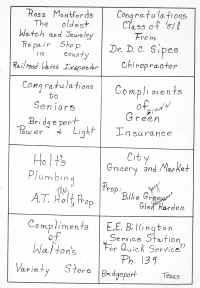 Ross Montfords
The oldest
Watch and Jewelry
Repair Shop
in county
Railroad Watch Inspector
Congratulations
Class of '51
From
Dr. D. C. Sipes
Chiropractor
Congratulations
to
Seniors
Bridgeport
Power & Light
Compliments
of
Green
Insurance
Holt's
Plumbing
A.T. Holt, Prop
City
Grocery and Market
Prop:
Glen Harden
Compliments
of
Walton's
Variety Store
E.E. Billington
Service Station
"For Quick Service"
Ph 139
Bridgeport Texas